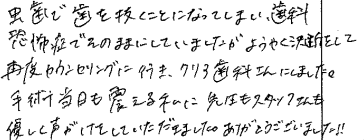 虫歯で歯を抜くことになってしまい、歯科
恐怖症でそのままにしていましたがようやく決断をして
再度カウンセリングに行き、クリア歯科さんにしました。
手術当日も震える私に先生もスタッフさんも
優しく声がけをしていただきました。ありがとうございました!!